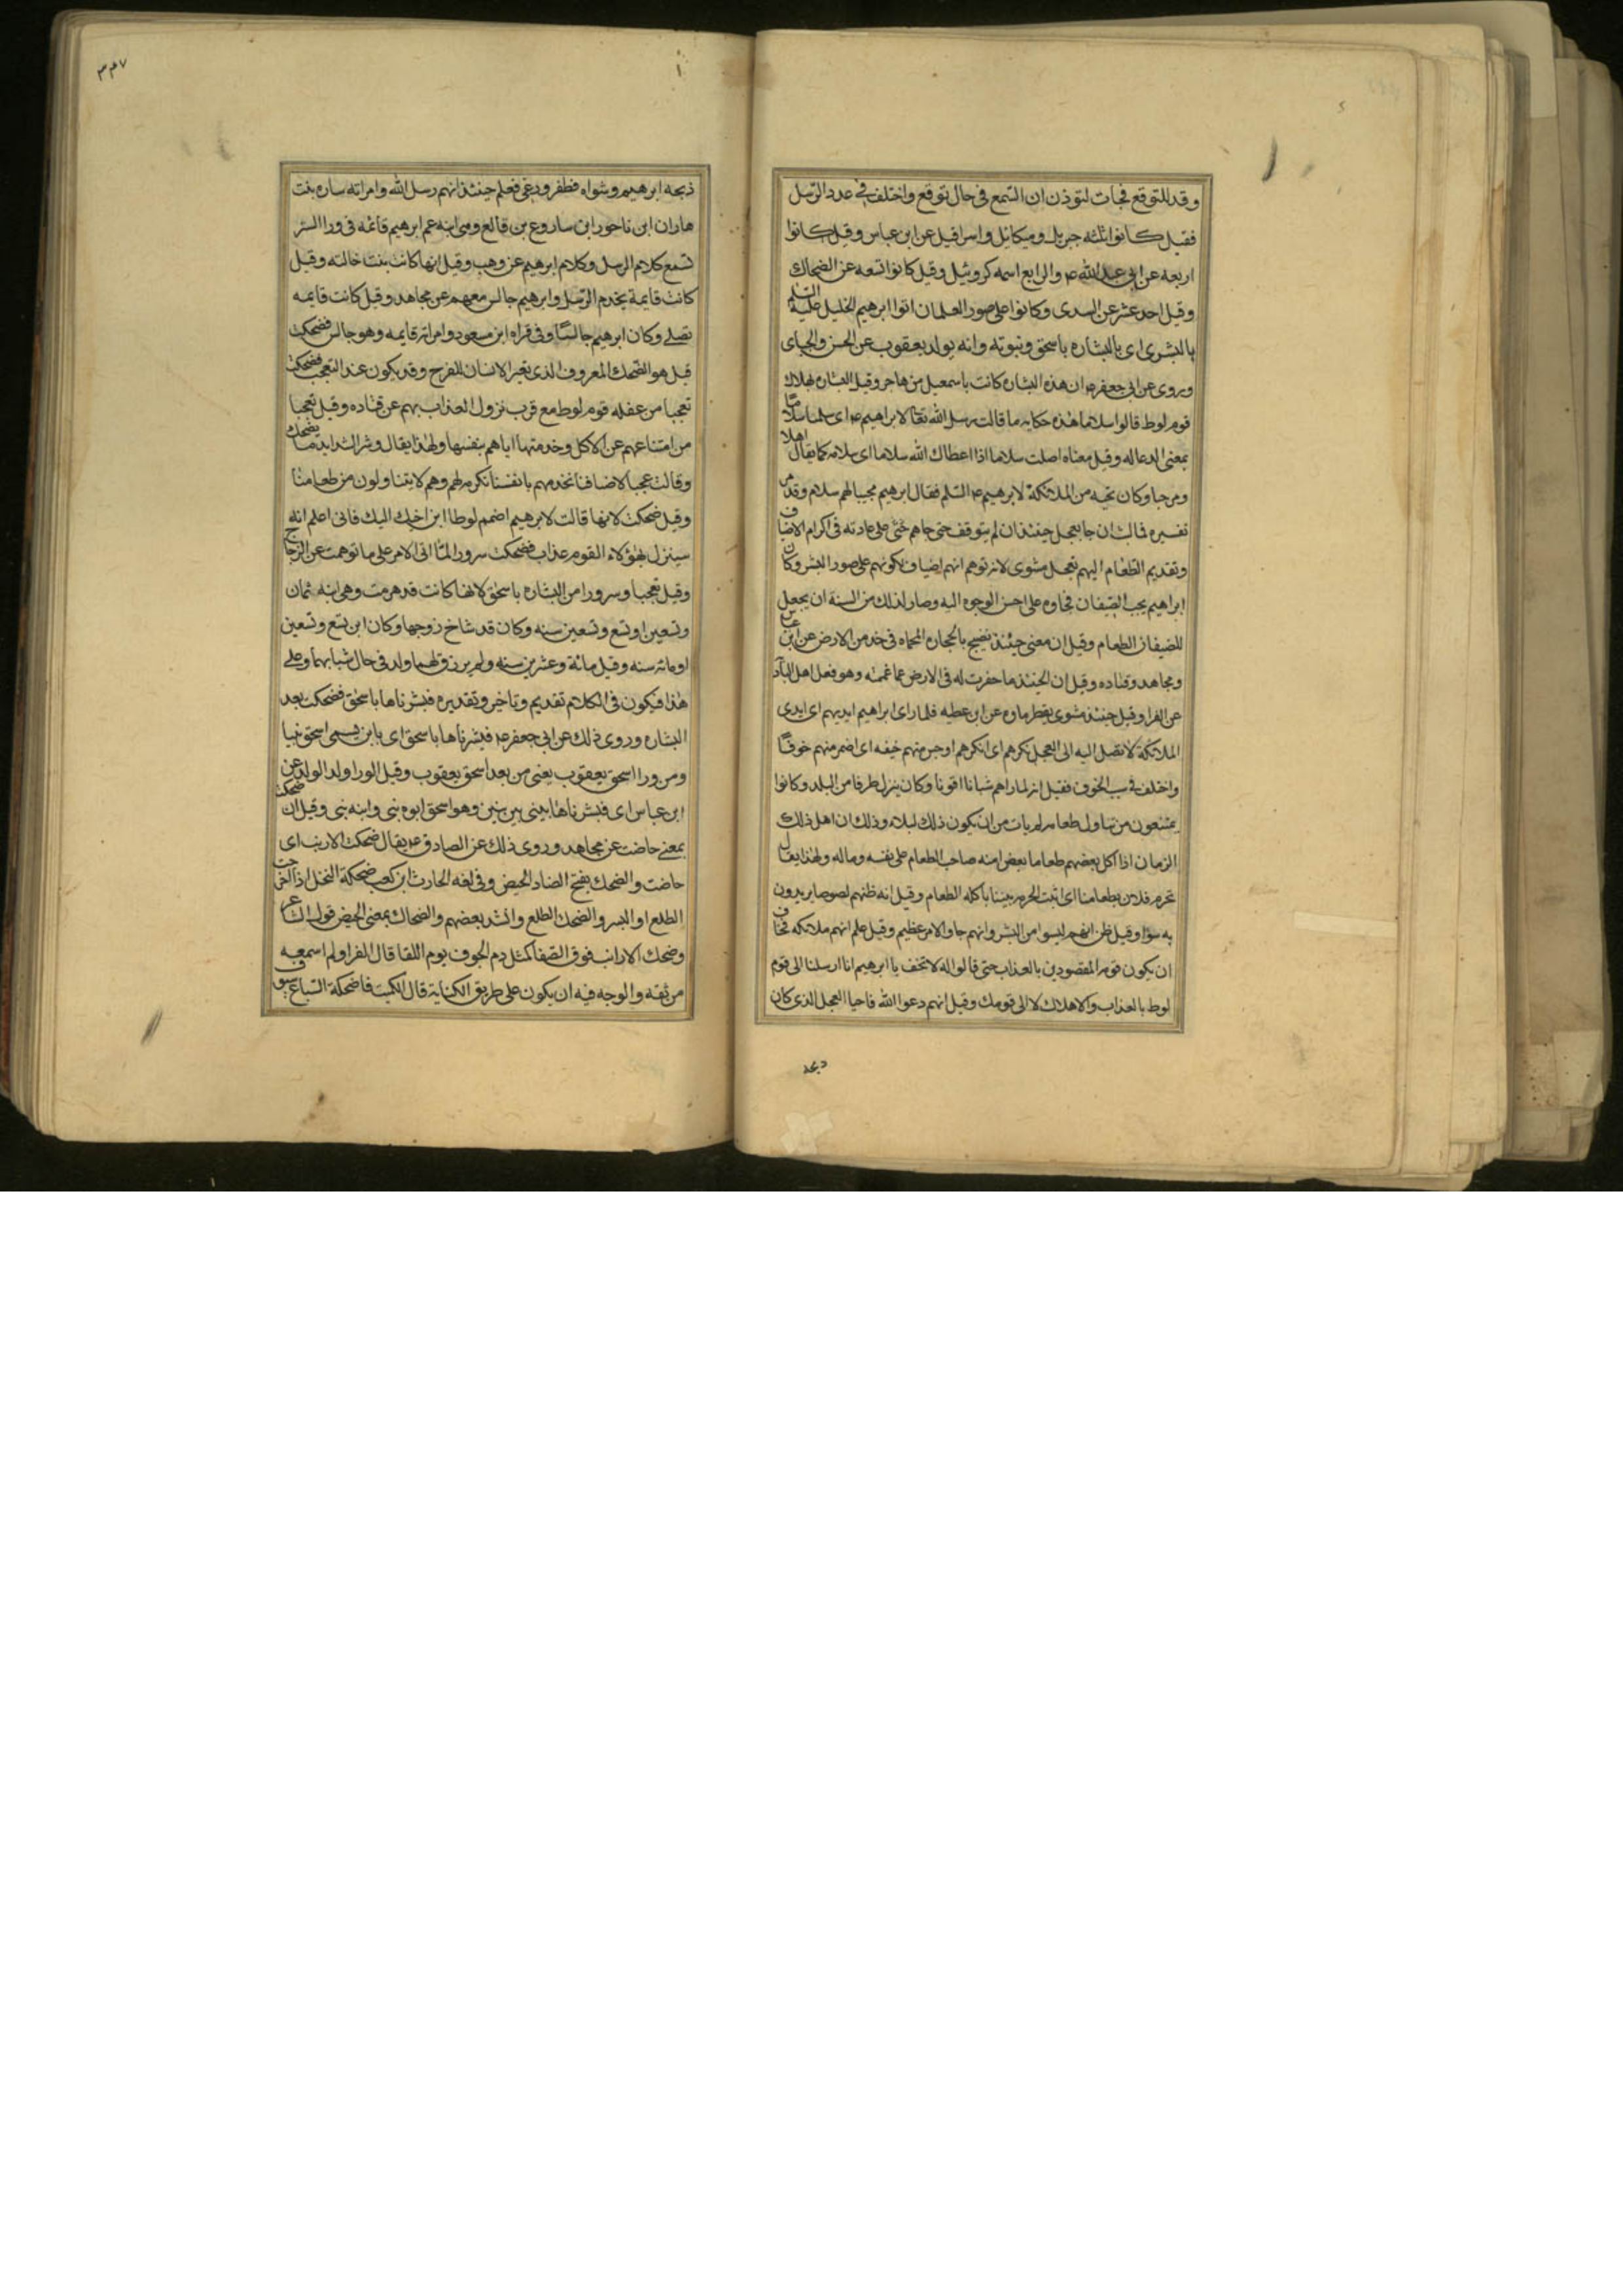 وقد للتوقع فجات لتوذن ان السمع فى حال توقع واختلف فى عدد الرسل
فقيل كانوا ثلثه جبريل وميكائيل واسرافيل عن ابن عباس وقيل كانوا
اربعه عن ابى عبد الله ع والرابع اسمه كروبيل وقيل كانوا تسعه عن الضحاك
وقيل احد عشر عن السدى وكانوا على صور الغلمان اتوا ابرهيم الخليل عليه السلم
بالبشرى اى بالبشاره باسحق ونبوته وانه يولد يعقوب عن الحسن والجباى
وروى عن ابى جعفر ع ان هذه البشاره كانت باسمعيل من هاجر وقيل البشاره بهلاك
قوم لوط قالوا سلاما هذه حكايه ما قالت رسل الله تعا لابراهيم ع اى سلمنا سلاما
بمعنى الدعا له وقيل معناه اصلت سلاما اذا اعطاك الله سلاما اى سلامه كما يقال اهلا
ومرحبا وكان تحيه من الملائكة لابرهيم ع السلم فقال ابرهيم مجيبا لهم سلام وقد مر
تفسيره فما لبث ان جا بعجل حينئذ ان لم يتوقف حتى جاهم على عادته فى اكرام الاضياف
وتقديم الطعام اليهم بعجل مشوى لانه توهم انهم اضياف لكونهم على صور البشر وكان
ابراهيم يحب الضيفان فجاوه على احسن الوجوه اليه وصار لذلك من السنة ان يعجل
للضيفان الطعام وقيل ان معنى حينئذ نضيج بالحجاره المحماه فى خد من الارض عن ابن عباس
ومجاهد وقتاده وقيل ان الحينئذ ما حفرت له فى الارض عما غممته وهو فعل اهل الباد
عن الفرا وقيل حينئذ مشوى يقطر ماوه عن ابن عطيه فلما راى ابراهيم ايديهم اى ايدى
الملائكة لا تصل اليه الى العجل نكرهم اى انكرهم اوجس منهم خيفه اى اضمر منهم خوفا
واختلف فى سبب الخوف فقيل انه لما راهم شبانا اقويا وكان ينزل طرفا من البلد وكانوا
يمتنعون من تناول طعامه لم يامن ان يكون ذلك لبلاء وذلك ان اهل ذلك
الزمان اذا اكل بعضهم طعاما بعض امنه صاحب الطعام على نفسه وماله ولهذا يقال
تحرم فلان بطعامنا اى اثبت الحرمه بيننا باكله الطعام وقيل انه ظنهم لصوصا يريدون
به سؤا وقيل ظن انهم ليسوا من البشر وانهم جاو لامر عظيم وقيل علم انهم ملائكه فخاف
ان يكون قومه المقصودين بالعذاب حتى قالوا له لا تخف يا ابرهيم انا ارسلنا الى قوم
لوط بالعذاب والاهلاك لا الى قومك وقيل انهم دعوا الله فاحيا العجل الذى كان
ذبحه
٣٤٧
ذبحه ابرهيم وشواه فطفر ورغى فعلم حينئذ انهم رسل الله وامراته ساره بنت
هاران ابن ناحور ابن ساروع بن قالع وهى ابنه عم ابرهيم قائمه فى ورا الستر
تسمع كلام الرسل وكلام ابرهيم عن وهب وقيل انها كانت بنت خالته وقيل
كانت قايمة يخدم الرسل وابرهيم جالس معهم عن مجاهد وقيل كانت قايمه
تصلى وكان ابرهيم جالسا وفى قراه ابن مسعود وامراته قايمه وهو جالس فضحكت
قيل هو الضحك المعروف الذى يعتبر الانسان للفرح وقد يكون عند التعجب فضحكت
تعجبا من غفله قوم لوط مع قرب نزول العذاب بهم عن قتاده وقيل تعجبا
من امتناعهم عن الاكل وخدمتها اياهم بنفسها ولهذا يقال وشر الشدايد ما يضحك
وقالت عجبا لاضيافنا نخدمهم بانفسنا نكرمه لهم وهم لا يتناولون من طعامنا
وقيل ضحكت لانها قالت لابرهيم اضمم لوطا ابن اخيك اليك فانى اعلم انه
سينزل بهؤلاء القوم عذاب فضحكت سرورا لما اتى الامر على ما توهمت عن الزجاج
وقيل تعجبا وسرورا من البشاره باسحق لانها كانت قد هرمت وهى ابنه ثمان
وتسعين او تسع وتسعين سنه وكان قد شاخ زوجها وكان ابن تسع وتسعين
او مائه سنه وقيل مائة وعشرين سنه ولم يرزق لهما ولد فى حال شبابهما وعلى
هذا فيكون فى الكلام تقديم وتاخير وتقديره فبشرناها باسحق فضحكت بعد
البشاره وروى ذلك عن ابى جعفر ع فبشرناها باسحق اى بابن يسمى اسحق نبيا
ومن ورا اسحق يعقوب يعنى من بعد اسحق يعقوب وقيل الورا ولد الولد عن
ابن عباس اى فبشرناها بنبى بين نبيين وهو اسحق ابوه نبى وابنه نبى وقيل ان ضحكت
بمعنى حاضت عن مجاهد وروى ذلك عن الصادق ع يقال ضحكت الارنب اى
حاضت والضحك بفتح الضاد الحيض وفى لغه الحارث ابن كعب ضحكة النخل اذا اخرجت
الطلع او البسر والضحك الطلع وانشد بعضهم والضحاك بمعنى الحيض قول الشاعر
وضحك الارانب فوق الصفا كمثل دم الجوف يوم اللقا قال الفرا ولم اسمعه
من ثقه والوجه فيه ان يكون على طريق الكناية قال الكميت فاضحكة السباع سيوف